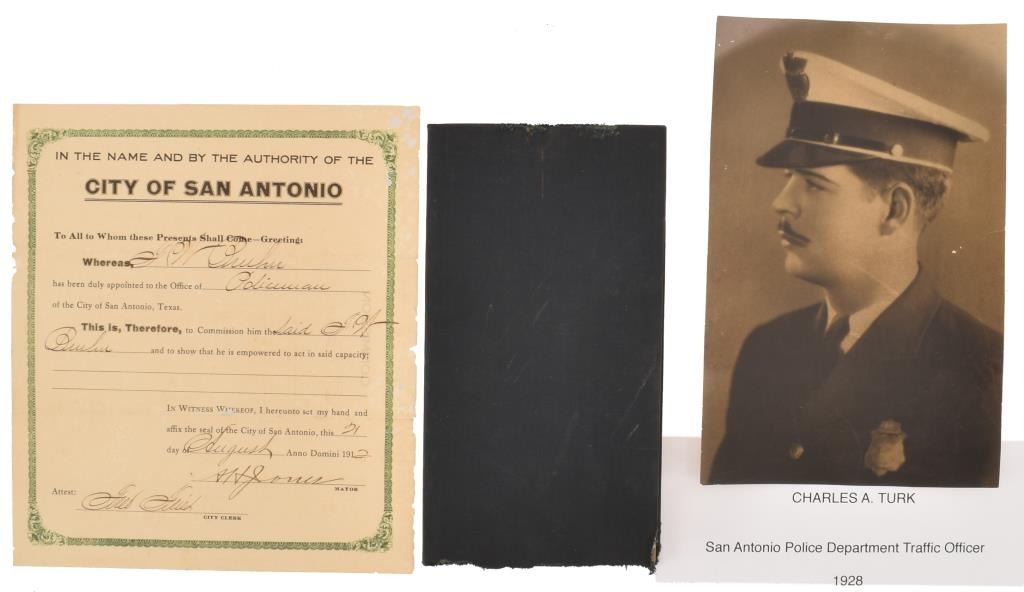 IN THE NAME AND BY THE AUTHORITY OF THE
CITY OF SAN ANTONIO
To All to Whom these Presents Shall Come—Greeting:
Whereas, J W
has been duly appointed to the Office of Policeman
of the City of San Antonio, Texas.
This is, Therefore, to Commission him the said J W
and to show that he is empowered to act in said capacity;
IN WITNESS WHEREOF, I hereunto set my hand and
affix the seal of the City of San Antonio, this 21
day of August Anno Domini 191
A H Jones
MAYOR
Attest: Fred Fries
CITY CLERK
CHARLES A. TURK
San Antonio Police Department Traffic Officer
1928